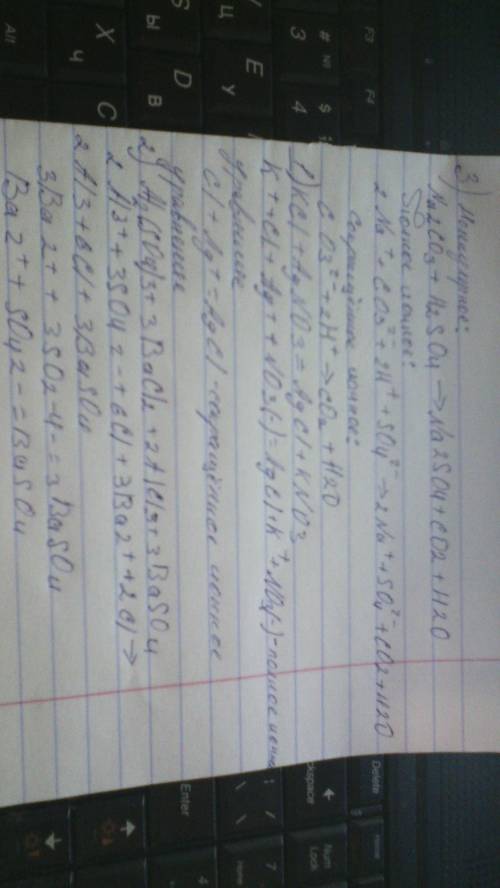 3) Молекулярное:
Na2CO3 + H2SO4 → Na2SO4 + CO2 + H2O
Полное ионное:
2Na⁺ + CO3²⁻ + 2H⁺ + SO4²⁻ → 2Na⁺ + SO4²⁻ + CO2 + H2O
сокращённое ионное:
CO3²⁻ + 2H⁺ → CO2 + H2O
1) KCl + AgNO3 = AgCl + KNO3
K⁺ + Cl + Ag⁺ + NO3(-) = AgCl + K⁺ + NO3(-) - полное ионное
уравнение
Cl + Ag⁺ = AgCl - сокращённое ионное
уравнение
2) Al2(SO4)3 + 3BaCl2 + 2AlCl3 + 3BaSO4
2Al3⁺ + 3SO4 2- + 6Cl + 3Ba2⁺ + 2Cl →
2Al3 + 6Cl + 3BaSO4
3Ba2⁺ + 3SO2-4 = 3BaSO4
Ba2⁺ + SO4 2- = BaSO4
F3
F4
#
№
3
$
4
Ц
E
У
S
Ы
D
В
X
Ч
C
Alt
Delete
Home
ckspace
Num
Lock
7
Home
Enter
4